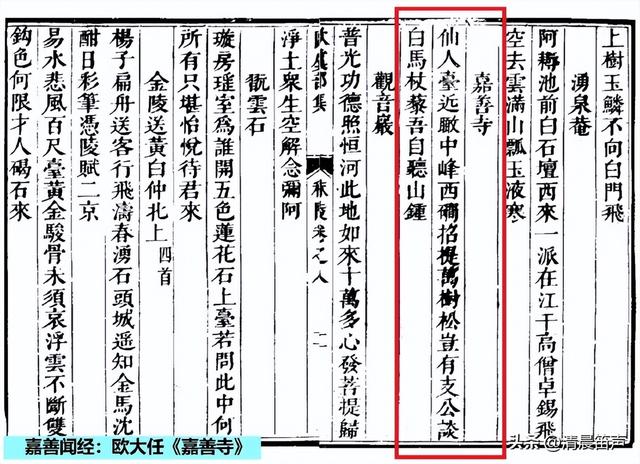 上樹玉鱗不向白門飛
湧泉菴
阿耨池前白石壇西來一派在江干高僧卓錫飛
空去雲滿山瓢玉液寒
嘉善寺
仙人臺遠瞰中峰西磵招提萬樹松豈有支公談
白馬杖藜吾自聽山鍾
觀音巖
普光功德照恒河此地如來十萬多心發菩提歸
部集 卷之八 二
淨土衆生空解念彌阿
翫雲石
璇房瑶室為誰開五色蓮花石上臺若問此中何
所有只堪怡悅待君來
金陵送黃白仲北上 四首
楊子扁舟送客行飛濤春湧石頭城遥知金馬沈
酣日彩筆憑陵賦二京
易水悲風百尺臺黃金駿骨未須哀浮雲不斷雙
鈎色何限才人碣石來
嘉善闻经：欧大任《嘉善寺》
头条 @清晨笛声